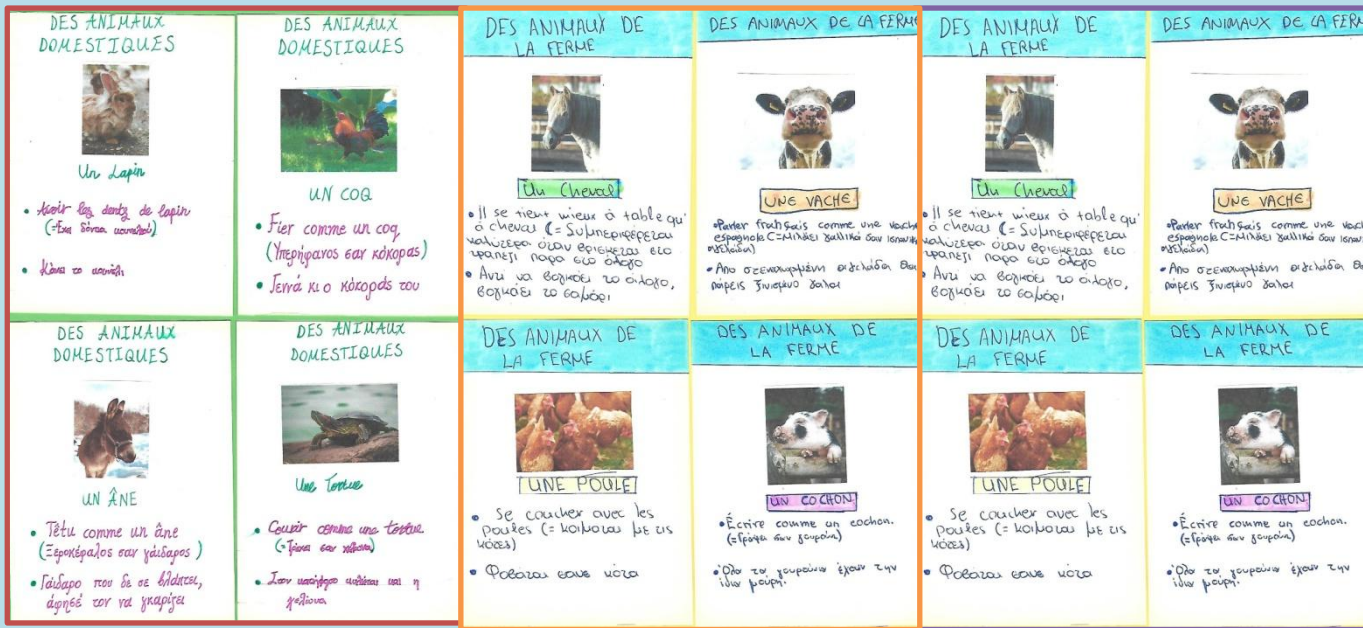 DES ANIMAUX
DOMESTIQUES
Un Lapin
• Avoir les dents de lapin
(=Έχει δόντια κουνελιού)
• Κάνει το κουνέλι
DES ANIMAUX
DOMESTIQUES
UN COQ
• Fier comme un coq
(Υπερήφανος σαν κόκορας)
• Γεννά κι ο κόκοράς του
DES ANIMAUX
DOMESTIQUES
UN ÂNE
• Têtu comme un âne
(Ξεροκέφαλος σαν γάιδαρος)
• Γάιδαρο που δε σε βλάπτει,
άφησέ τον να γκαρίζει
DES ANIMAUX
DOMESTIQUES
Une Tortue
• Courir comme une tortue
(=Τρέχει σαν χελώνα)
• Στον και η
χελώνα
DES ANIMAUX DE
LA FERME
Un Cheval
• Il se tient mieux à table qu'
à cheval (= Συμπεριφέρεται
καλύτερα όταν βρίσκεται στο
τραπέζι παρά στο άλογο
• Αντί να βογκάει το άλογο,
βογκάει το σαμάρι
DES ANIMAUX DE LA FERME
UNE VACHE
• Parler français comme une vache
espagnole (=Μιλάει γαλλικά σαν
αγελάδα)
• Από αγελάδα θα
πάρεις ξινισμένο γάλα
DES ANIMAUX DE
LA FERME
UNE POULE
• Se coucher avec les
poules (= κοιμάται με τις
κότες)
• Φοβάται σαν κότα
DES ANIMAUX DE
LA FERME
UN COCHON
• Écrire comme un cochon.
(=Γράφει σαν γουρούνι)
• Όλα τα γουρούνια έχουν την
ίδια μούρη.
DES ANIMAUX DE
LA FERME
Un Cheval
• Il se tient mieux à table qu'
à cheval (= Συμπεριφέρεται
καλύτερα όταν βρίσκεται στο
τραπέζι παρά στο άλογο
• Αντί να βογκάει το άλογο,
βογκάει το σαμάρι
DES ANIMAUX DE LA FERM
UNE VACHE
• Parler français comme une vache
espagnole (=Μιλάει γαλλικά σαν
αγελάδα)
• Από αγελάδα θα
πάρεις ξινισμένο γάλα
DES ANIMAUX DE
LA FERME
UNE POULE
• Se coucher avec les
poules (= κοιμάται με τις
κότες)
• Φοβάται σαν κότα
DES ANIMAUX DE
LA FERME
UN COCHON
• Écrire comme un cochon.
(=Γράφει σαν γουρούνι)
• Όλα τα γουρούνια έχουν την
ίδια μούρη.